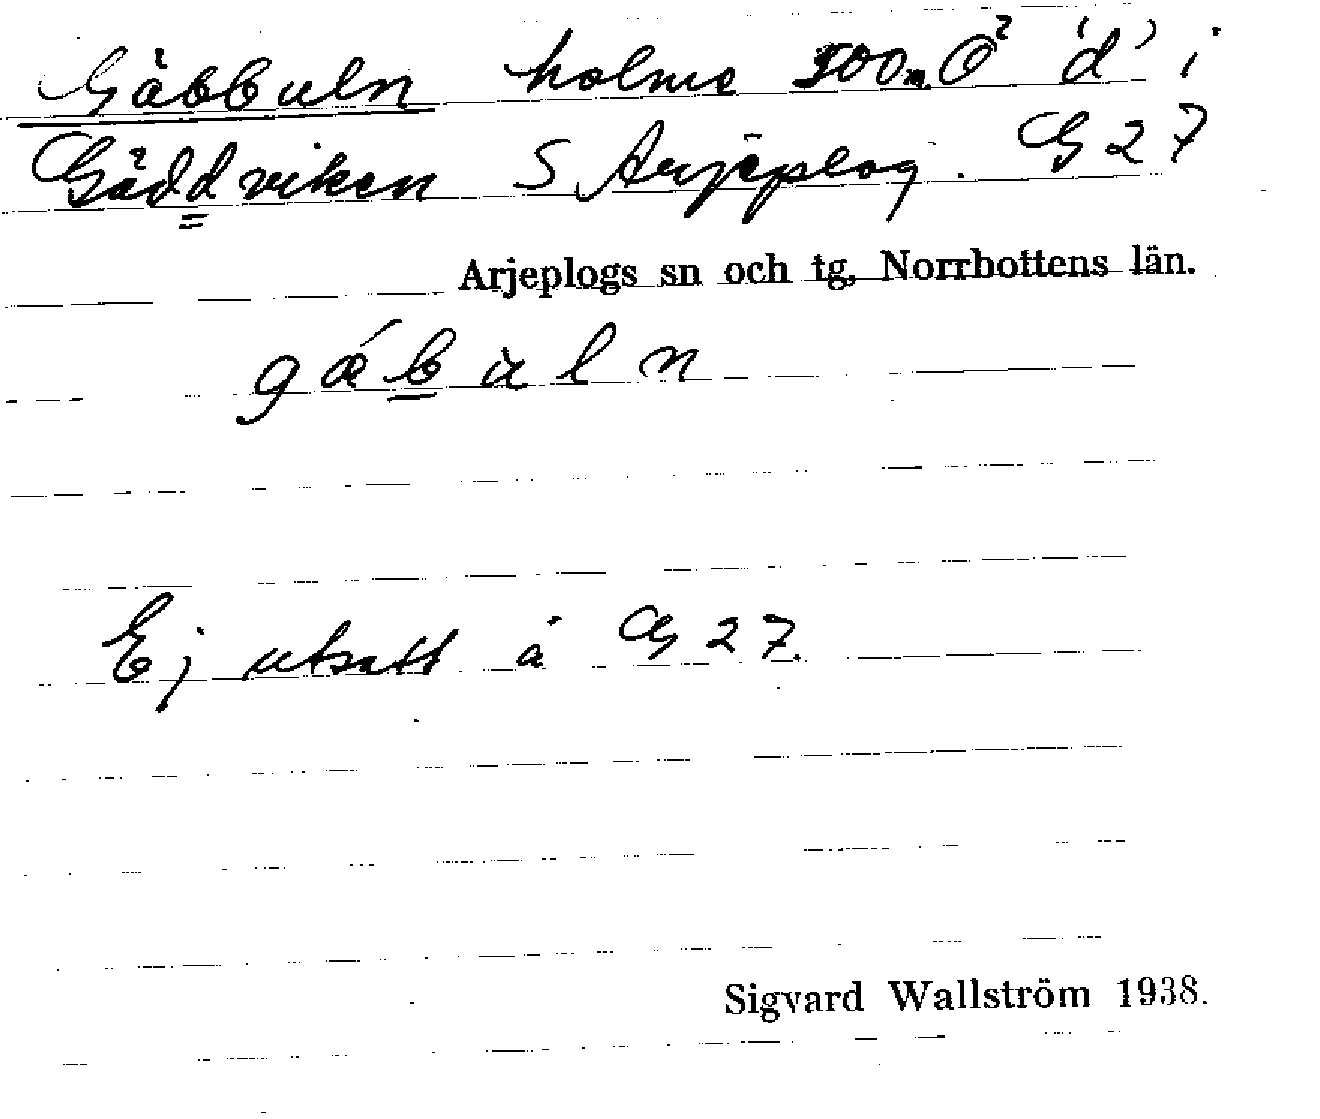 Gäbbuln holme 500m Ö 'd' i
Gäddviken S Arjeplog. G 27
Arjeplogs sn och tg, Norrbottens län.
gǽbuln
Ej utsatt å G 27.
Sigvard Wallström 1938.